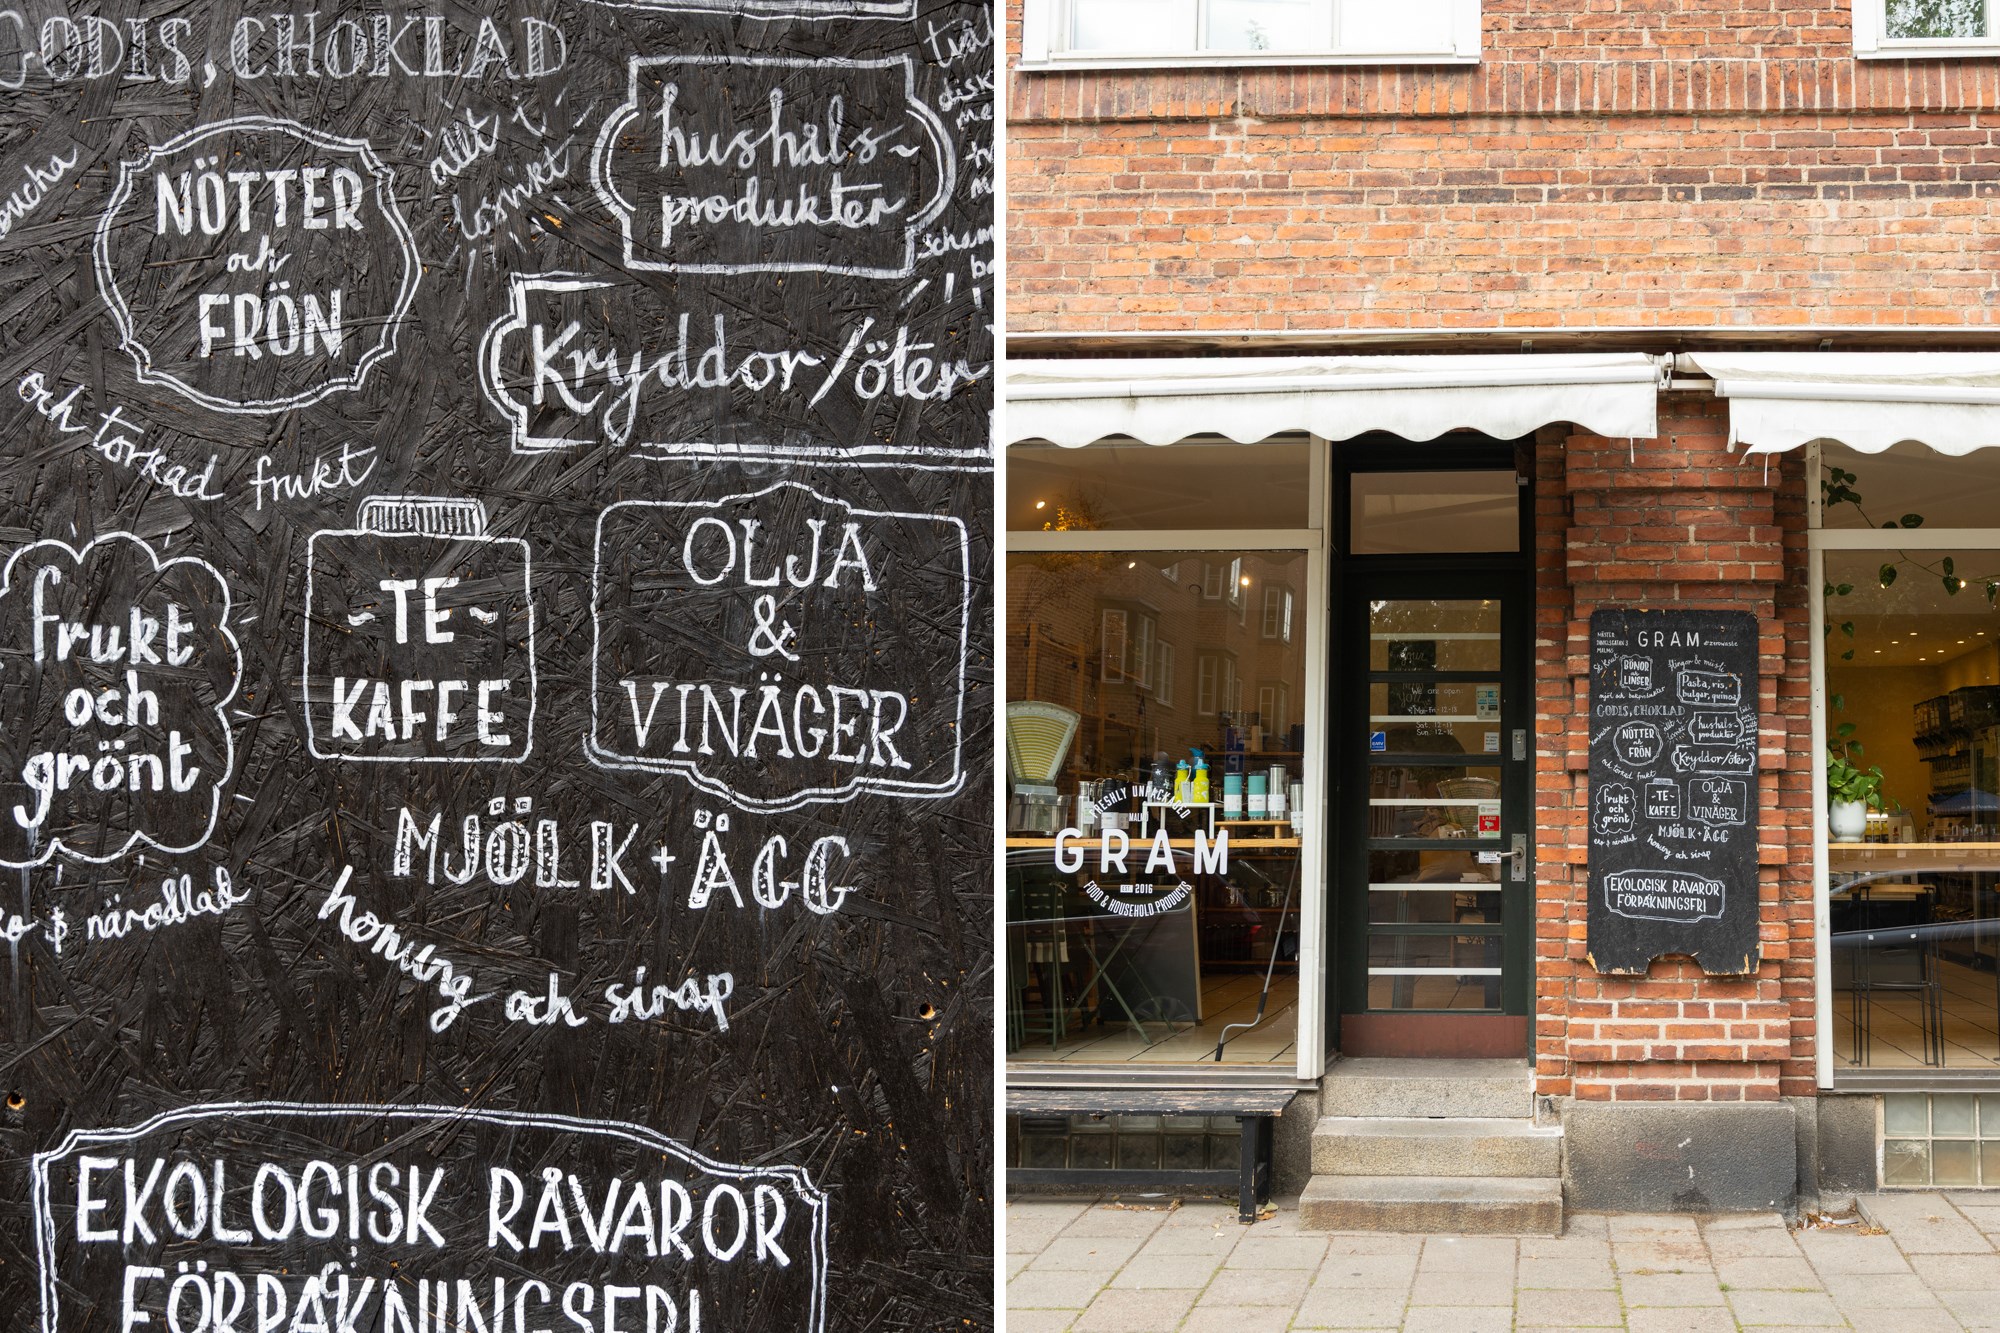 GODIS, CHOKLAD
NÖTTER
och
FRÖN
allt i
lösvikt
hushåls-
produkter
Kryddor/örter
och torkad frukt
frukt
och
grönt
-TE-
KAFFE
OLJA
&
VINÄGER
MJÖLK + ÄGG
närodlad
honung och sirap
EKOLOGISK RÅVAROR
FÖRPAKNINGSFRI
FRESHLY UNPACKAGED
MALMÖ
GRAM
EST. 2016
FOOD & HOUSEHOLD PRODUCTS
We are open:
Mo-Fri-12-18
Sat: 12-17
Sun: 12-16
GRAM
MALMÖ
BÖNOR
LINSER
flingor & müsli
Pasta, ris,
bulgur, quinoa
mjöl och bakprodukter
GODIS, CHOKLAD
allt i
lösvikt
hushåls-
produkter
NÖTTER
och
FRÖN
Kryddor/örter
och torkad frukt
frukt
och
grönt
-TE-
KAFFE
OLJA
&
VINÄGER
MJÖLK + ÄGG
eko & närodlad
honung och sirap
EKOLOGISK RÅVAROR
FÖRPAKNINGSFRI